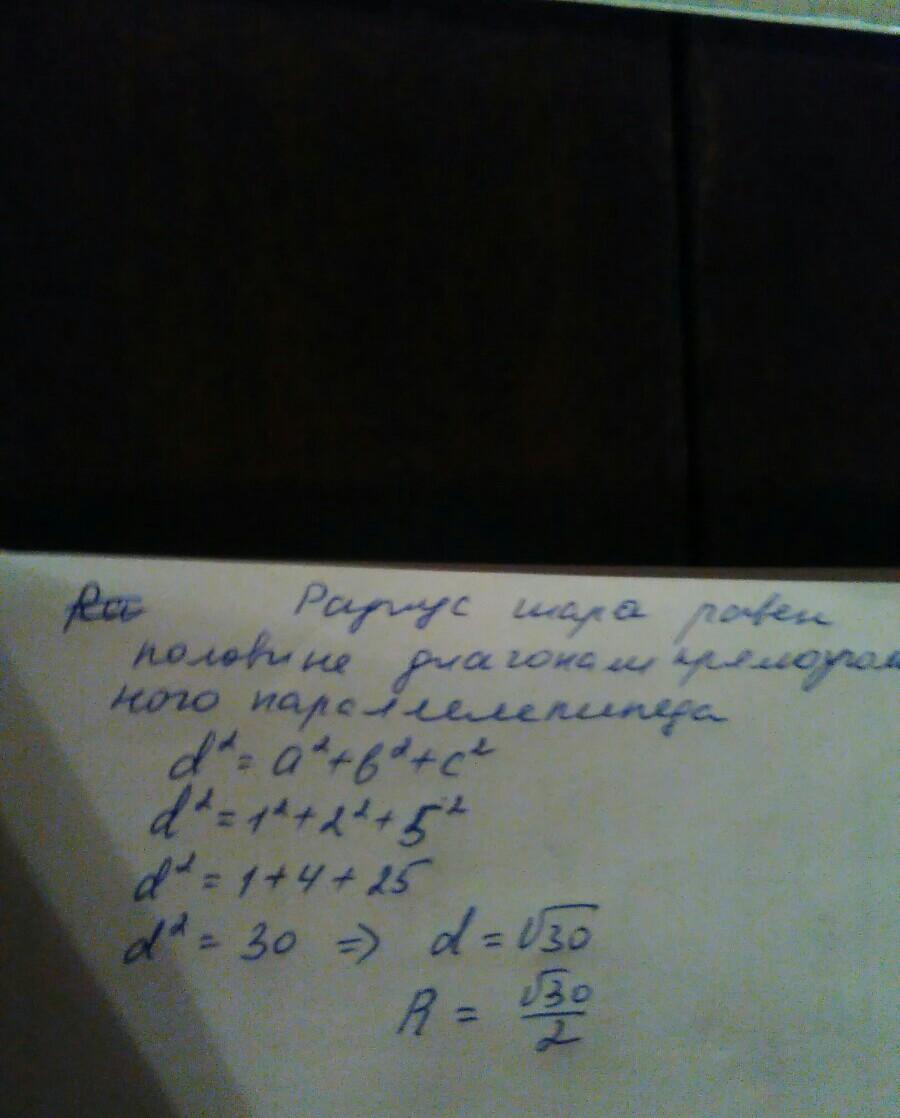 Радиус шара равен
половине диагонали прямоугол
ного параллелепипеда
d² = a² + b² + c²
d² = 1² + 2² + 5²
d² = 1 + 4 + 25
d² = 30 => d = √30
R = √30/2